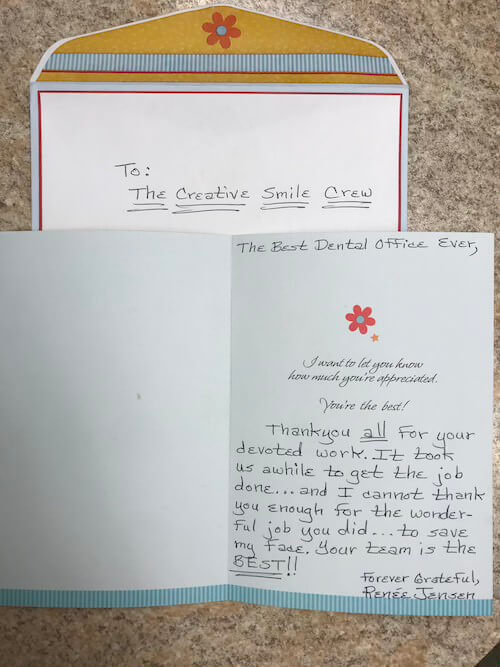 To:
The Creative Smile Crew
The Best Dental Office Ever,
I want to let you know
how much you're appreciated.
You're the best!
Thankyou all for your
devoted work. It took
us awhile to get the job
done...and I cannot thank
you enough for the wonder-
ful job you did...to save
my face. Your team is the
BEST!!
Forever Grateful,
Renée Jensen